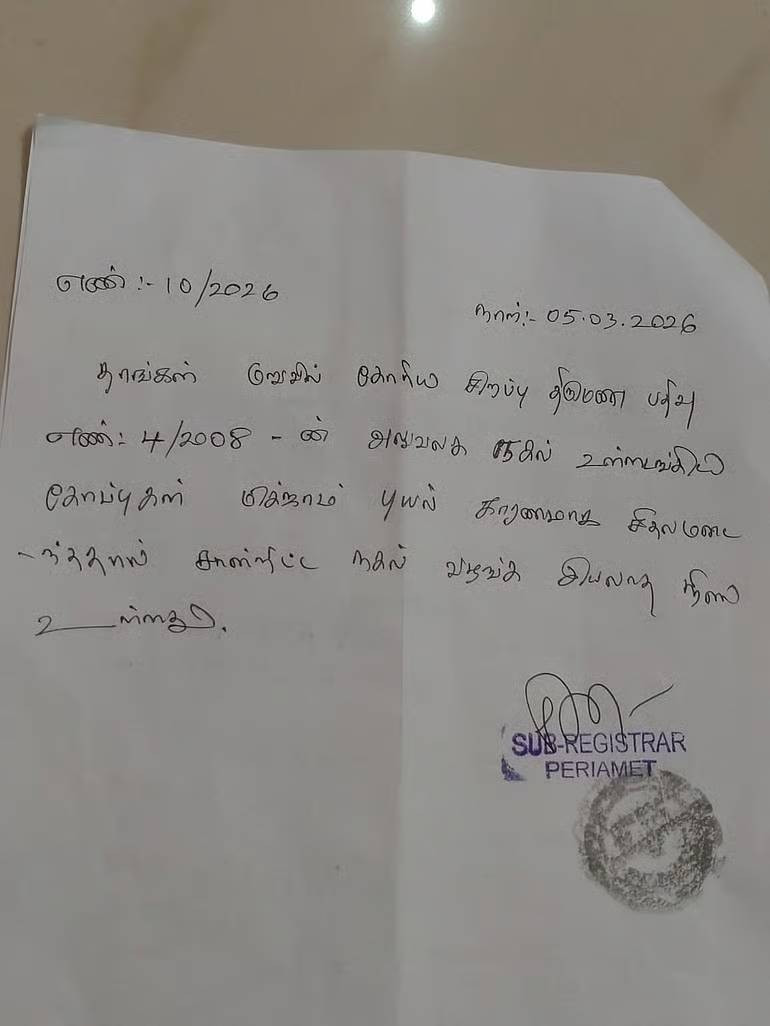 எண் :- 10/2026
நாள்:- 05.03.2026
தாங்கள் மனுவில் கோரிய சிறப்பு திருமண பதிவு
எண்: 4/2008 - ன் அலுவலக நகல் உள்ளடங்கிய
கோப்புகள் மிக்ஜாம் புயல் காரணமாக சிதலமடை
-ந்ததால் சான்றிட்ட நகல் வழங்க இயலாத நிலை
உள்ளது.
SUB-REGISTRAR
PERIAMET